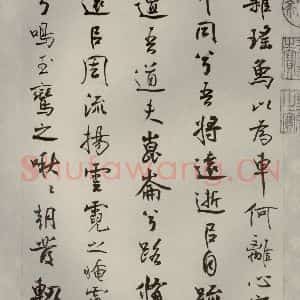 雜瑤象以為車何離心
同兮吾將遠逝㠯自疏
邅吾道夫崑崙兮路脩
遠㠯周流揚雲霓之晻
兮鳴玉鸞之啾々朝發軔
Shufawang.CN